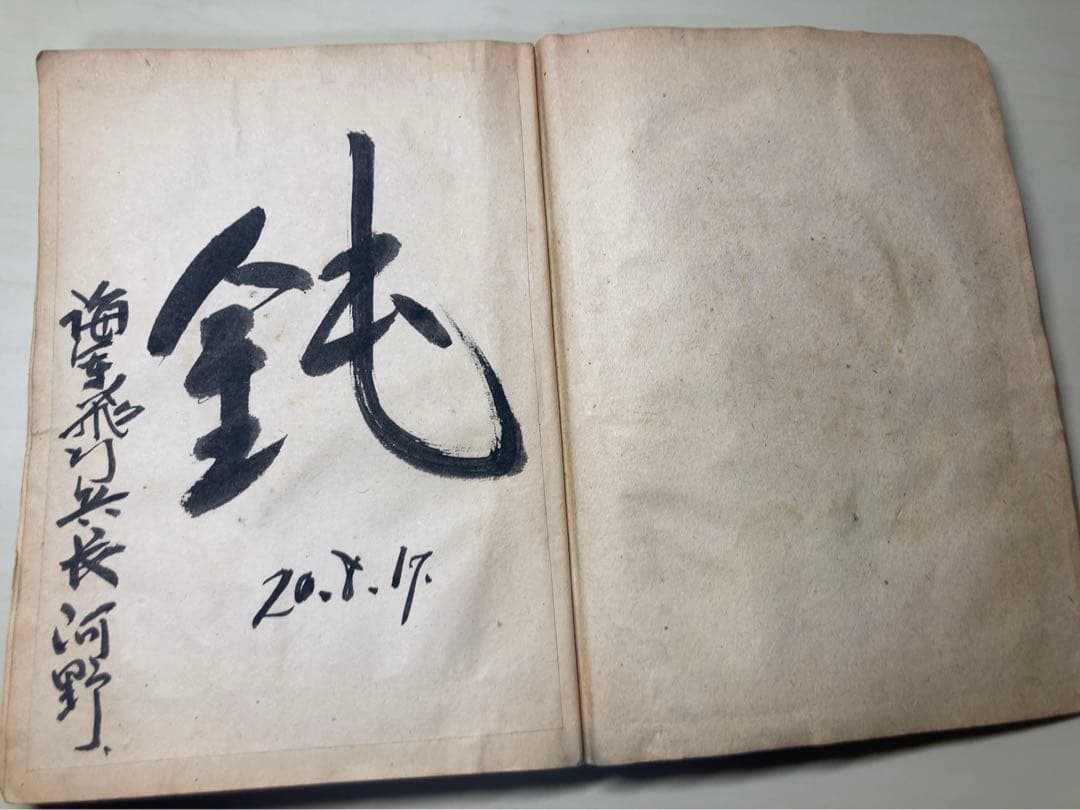 鈍
20.8.17.
海軍飛行兵長 河野